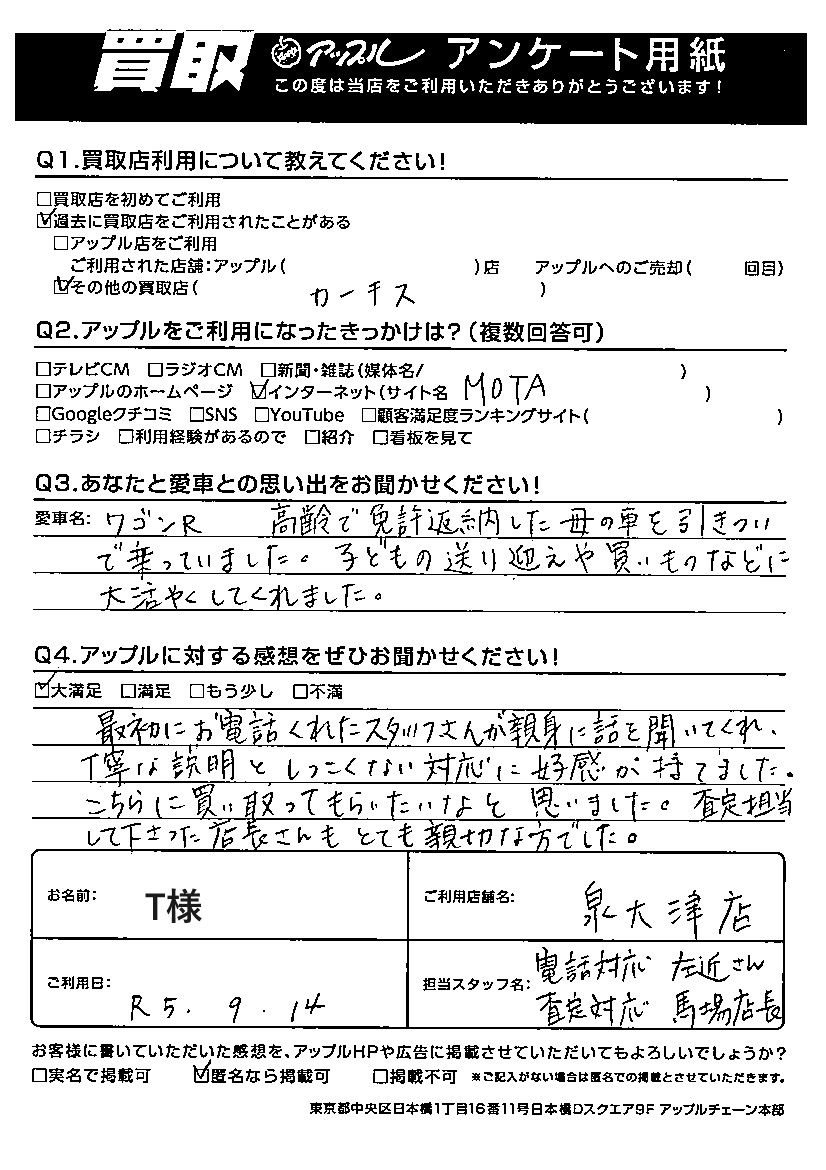 買取 アップル アンケート用紙
この度は当店をご利用いただきありがとうございます!
Q1.買取店利用について教えてください!
□買取店を初めてご利用
☑過去に買取店をご利用されたことがある
□アップル店をご利用
ご利用された店舗:アップル( )店 アップルへのご売却( 回目)
☑その他の買取店( カーチス )
Q2.アップルをご利用になったきっかけは?(複数回答可)
□テレビCM □ラジオCM □新聞・雑誌(媒体名/ )
□アップルのホームページ ☑インターネット(サイト名 MOTA )
□Googleクチコミ □SNS □YouTube □顧客満足度ランキングサイト( )
□チラシ □利用経験があるので □紹介 □看板を見て
Q3.あなたと愛車との思い出をお聞かせください!
愛車名: ワゴンR 高齢で免許返納した母の車を引きつい
で乗っていました。子どもの送り迎えや買いものなどに
大活やくしてくれました。
Q4.アップルに対する感想をぜひお聞かせください!
☑大満足 □満足 □もう少し □不満
最初にお電話くれたスタッフさんが親身に話を聞いてくれ、
丁寧な説明としつこくない対応に好感が持てました。
こちらに買い取ってもらいたいなと思いました。査定担当
して下さった店長さんもとても親切な方でした。
お名前: T様
ご利用店舗名: 泉大津店
ご利用日: R5.9.14
担当スタッフ名: 電話対応 左近さん
査定対応 馬場店長
お客様に書いていただいた感想を、アップルHPや広告に掲載させていただいてもよろしいでしょうか?
□実名で掲載可 ☑匿名なら掲載可 □掲載不可 ※ご記入がない場合は匿名での掲載とさせていただきます。
東京都中央区日本橋1丁目16番11号日本橋Dスクエア9F アップルチェーン本部